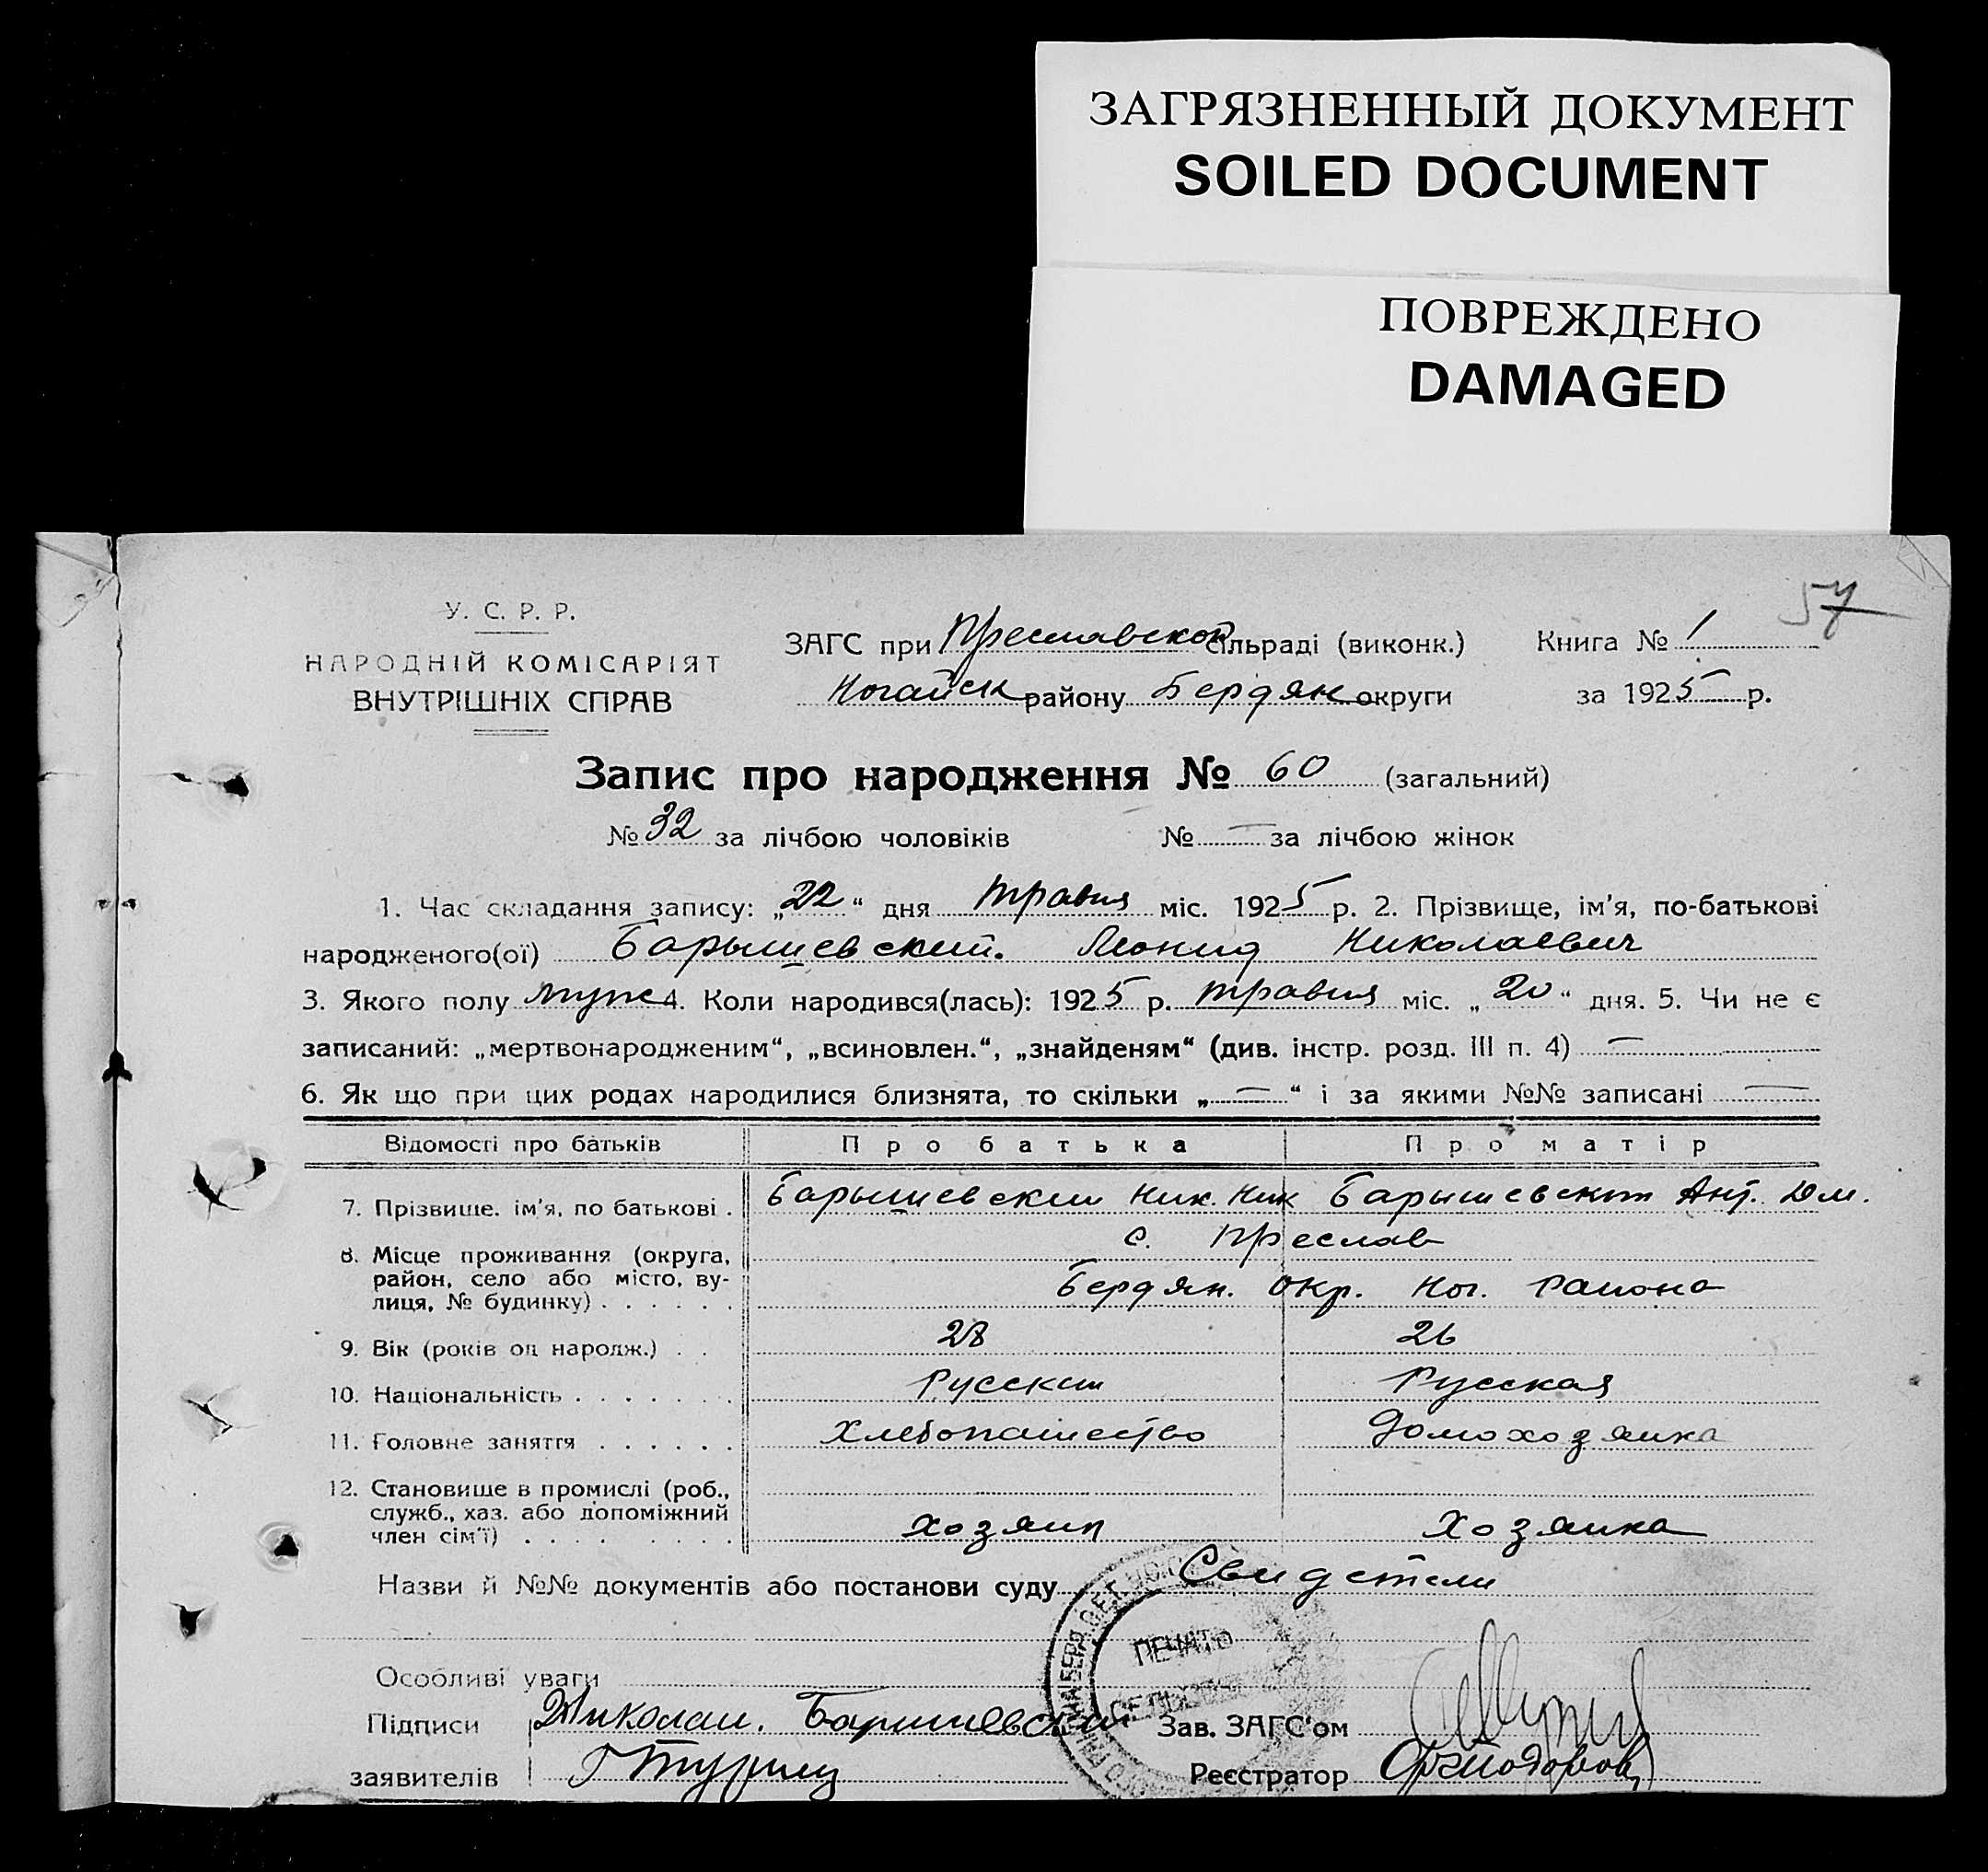 ЗАГРЯЗНЕННЫЙ ДОКУМЕНТ
SOILED DOCUMENT
ПОВРЕЖДЕНО
DAMAGED
57
У. С. Р. Р.
НАРОДНІЙ КОМІСАРІЯТ
ВНУТРІШНІХ СПРАВ
ЗАГС при Преславской сільраді (виконк.) Книга № 1
Ногайск району Бердянс округи за 1925 р.
Запис про народження № 60 (загальний)
№ 32 за лічбою чоловіків № — за лічбою жінок
1. Час складання запису: „22“ дня травня міс. 1925 р. 2. Прізвище, ім'я, по-батькові
народженого(ої) Барышевский. Леонид Николаевич
3. Якого полу муж 4. Коли народився(лась): 1925 р. травня міс. „20“ дня. 5. Чи не є
записаний: „мертвонародженим“, „всиновлен.“, „знайденям“ (див. інстр. розд. III п. 4) —
6. Як що при цих родах народилися близнята, то скільки „—“ і за якими №№ записані —
Відомості про батьків Про батька Про матір
7. Прізвище, ім'я, по батькові . Барышевский Ник. Ник Барышевская Ант. Дм.
8. Місце проживання (округа, район, село або місто, вулиця, № будинку) . . . . . . с. Преслав
Бердян. Окр. Ног. Района
9. Вік (років од народж.) . . 28 26
10. Національність . . . . . . . Русский Русская
11. Головне заняття . . . . . . Хлебопашество Домохозяйка
12. Становище в промислі (роб., служб., хаз. або допоміжний член сім'ї) . . . . . . . . хозяин Хозяйка
Назви й №№ документів або постанови суду Свидетели
Особливі уваги
ПЕЧАТЬ
Підписи Николай. Барышевский Зав. ЗАГС'ом
заявителів Реєстратор